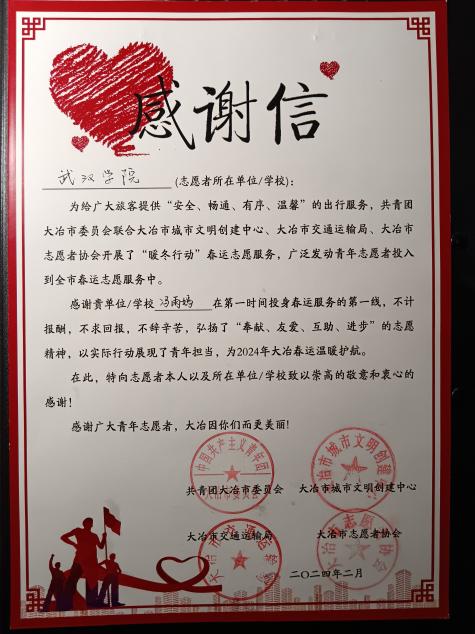 感谢信
武汉学院 (志愿者所在单位/学校):
为给广大旅客提供“安全、畅通、有序、温馨”的出行服务，共青团
大冶市委员会联合大冶市城市文明创建中心、大冶市交通运输局、大冶市
志愿者协会开展了“暖冬行动”春运志愿服务，广泛发动青年志愿者投入
到全市春运志愿服务中。
感谢贵单位/学校冯雨嫣在第一时间投身春运服务的第一线，不计
报酬，不求回报，不辞辛苦，弘扬了“奉献、友爱、互助、进步”的志愿
精神，以实际行动展现了青年担当，为2024年大冶春运温暖护航。
在此，特向志愿者本人以及所在单位/学校致以崇高的敬意和衷心的
感谢!
感谢广大青年志愿者，大冶因你们而更美丽!
中国共产主义青年团
大冶市委员会
大冶市城市文明创建
共青团大冶市委员会 大冶市城市文明创建中心
大冶市交通运输局 大冶市志愿者协会
大冶市交通运输局
大冶市志愿者协会
二〇二四年二月